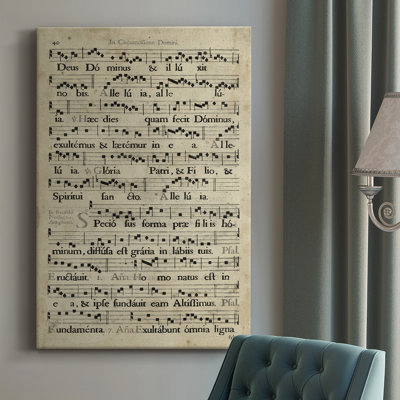 40 In Circumcisione Domini.
Deus Dó minus & il lú xit
no bis. Alle lú ia, al le lú-
ia. ℣. Hæc dies quam fecit Dóminus,
exultémus & lætémur in e a. Alle-
lú ia. ℣. Glória Patri, & Fi lio, &
Spiritui san cto. Alle lú ia.
Speció sus forma præ fi li is hó-
minum, diffúsa est grátia in lábiis tuis. Psal.
Eructávit. Aña. Ho mo natus est in
e a, & ipse fundávit eam Altíssimus. Psal.
Fundaménta. 7. Aña. Exultábunt ómnia ligna